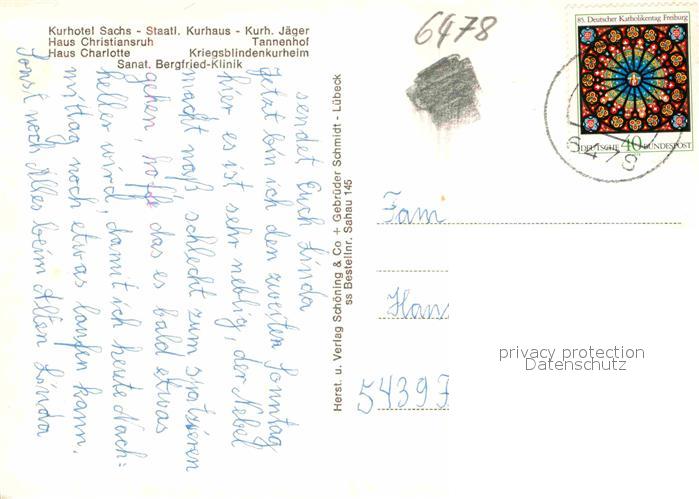 Kurhotel Sachs - Staatl. Kurhaus - Kurh. Jäger
Haus Christiansruh Tannenhof
Haus Charlotte Kriegsblindenkurheim
Sanat. Bergfried-Klinik
sendet Euch Linda
Jetzt bin ich den zweiten Sonntag
hier es ist sehr neblig, der Nebel
macht naß schlecht zum spatzieren
gehen, hoffe das es bald etwas
heller wird, damit ich heute Nach:
mittag noch etwas laufen kann.
Sonst noch Alles beim Alten Linda
Herst. u. Verlag Schöning & Co + Gebrüder Schmidt - Lübeck
ss Bestellnr. Sahau 145
6478
85. Deutscher Katholikentag Freiburg
DEUTSCHE 40 BUNDESPOST
Fam
Han
5439
privacy protection
Datenschutz